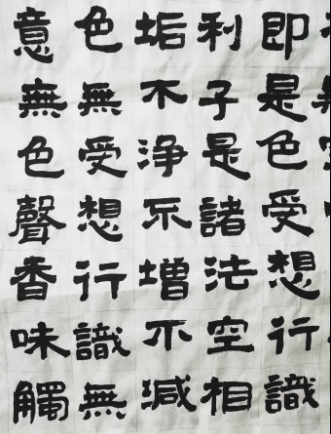 即是色受想行識
利子是諸法空相
垢不淨不增不減
色無受想行識無
意無色聲香味觸